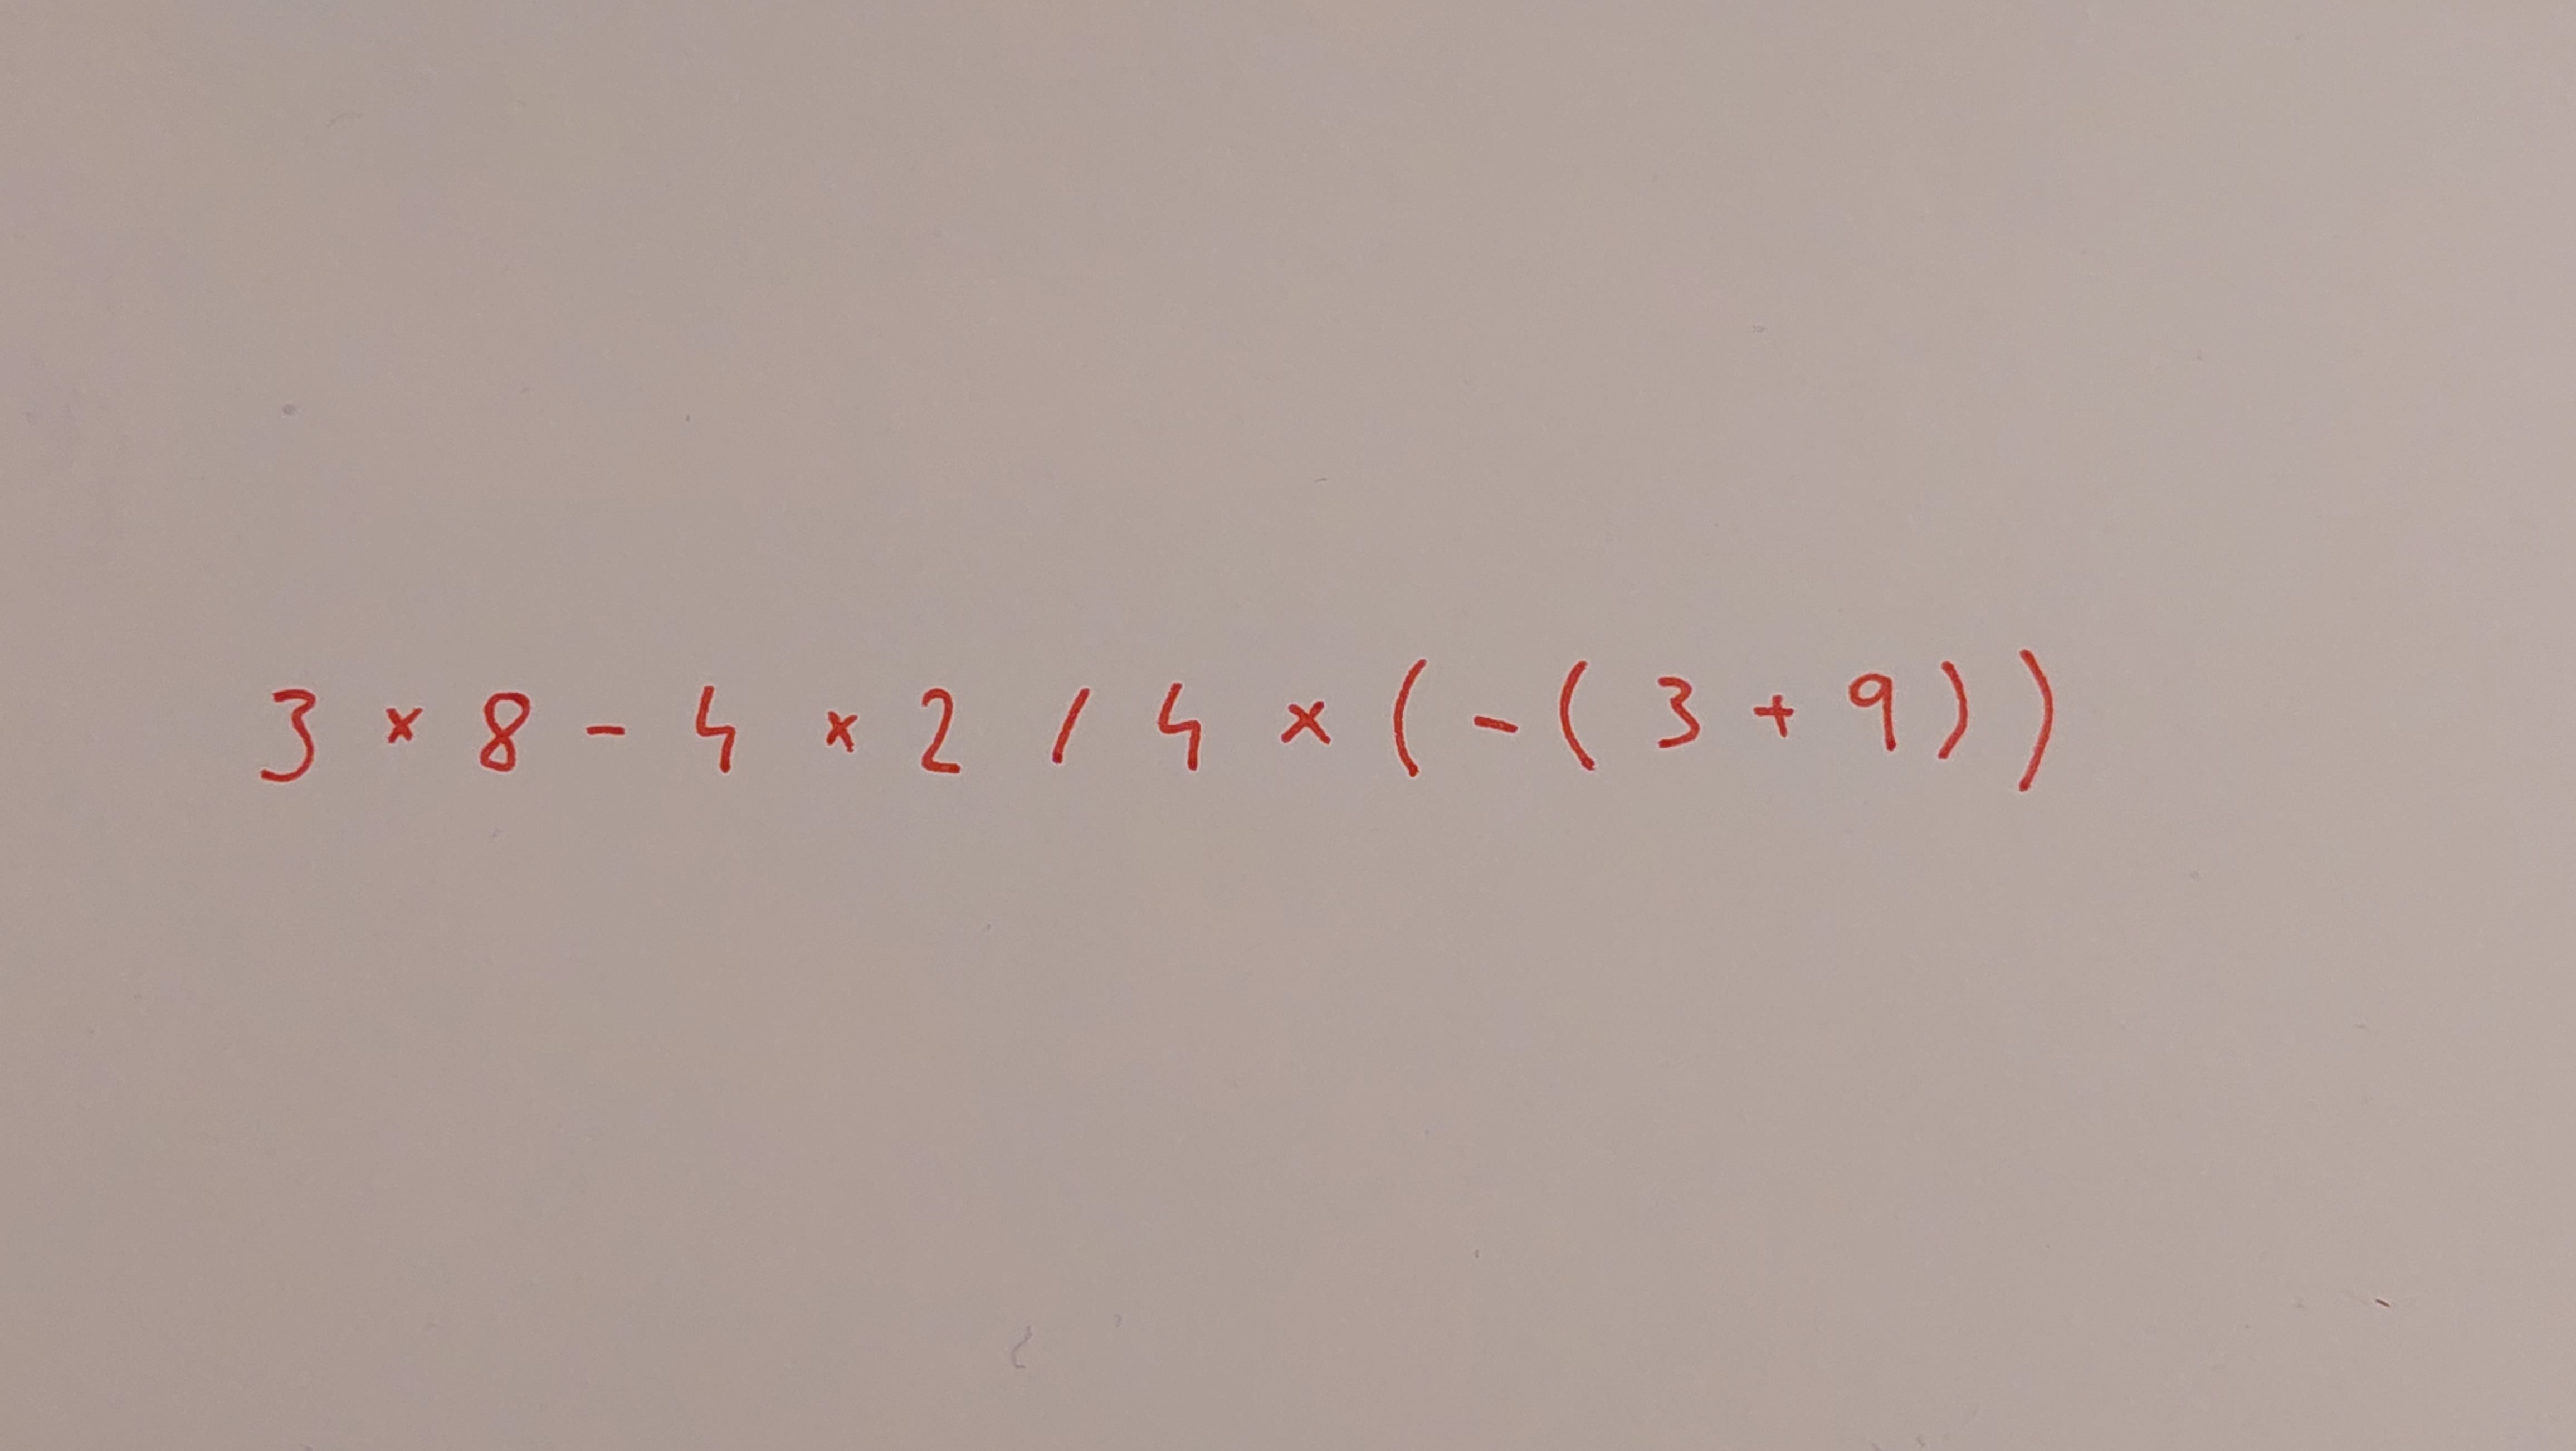 3 × 8 - 4 × 2 / 4 × ( - ( 3 + 9 ) )